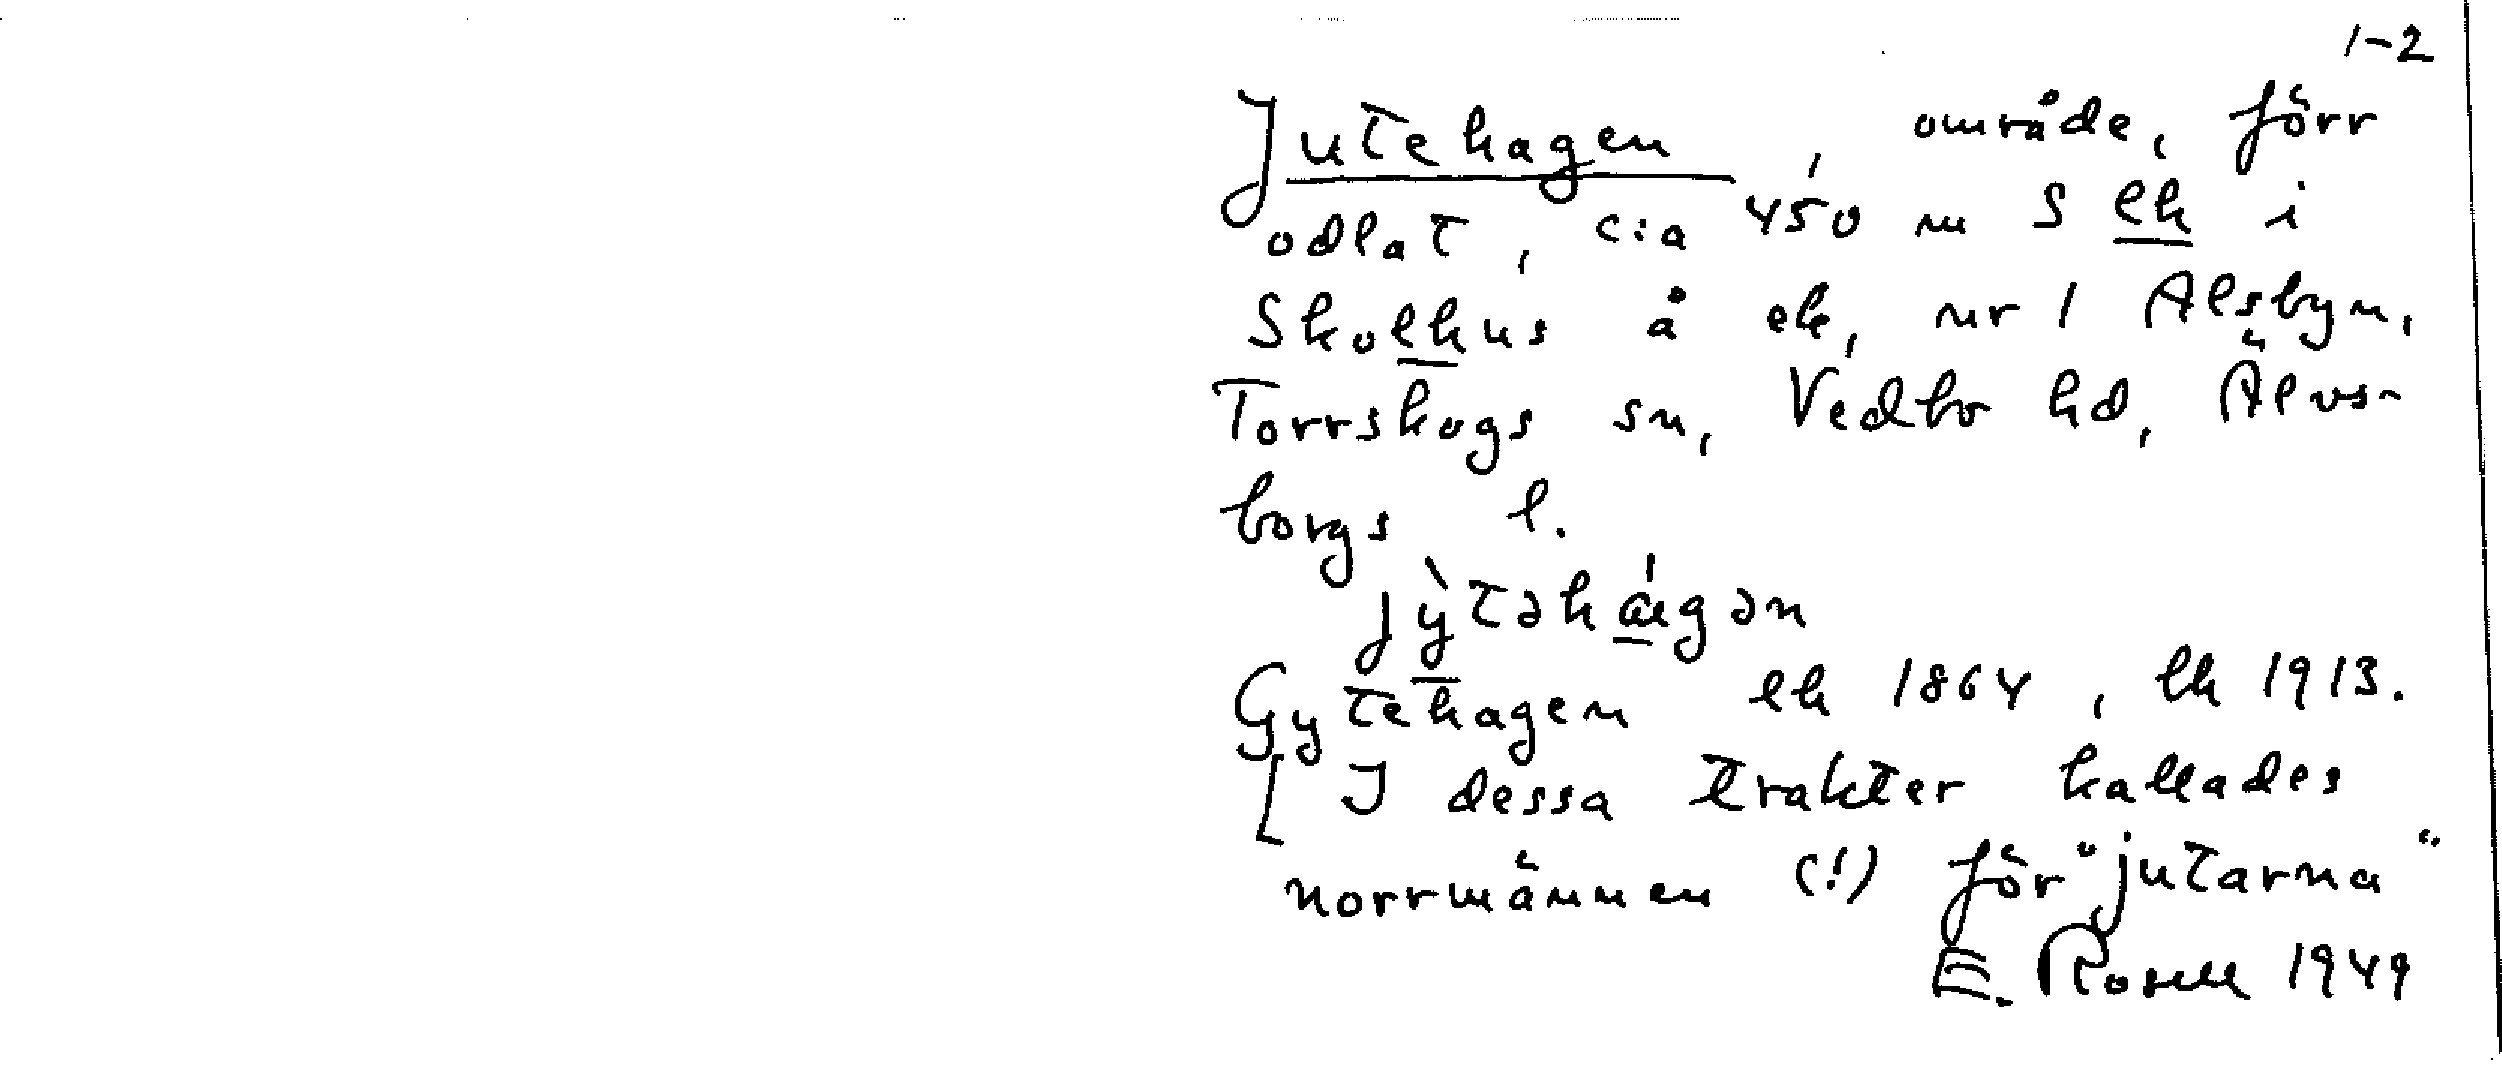 1-2
Jutehagen, område, förr
odlat, c:a 450 m S lh i
Skolhus å ek, nr 1 Alsbyn,
Torrskogs sn, Vedbo hd, Älvs-
borgs l.
jỳtəhágən
Gytehagen ek 1864, ek 1913.
[I dessa trakter kallades
norrmännen (!) för "jutarna"
E. Rosell 1949